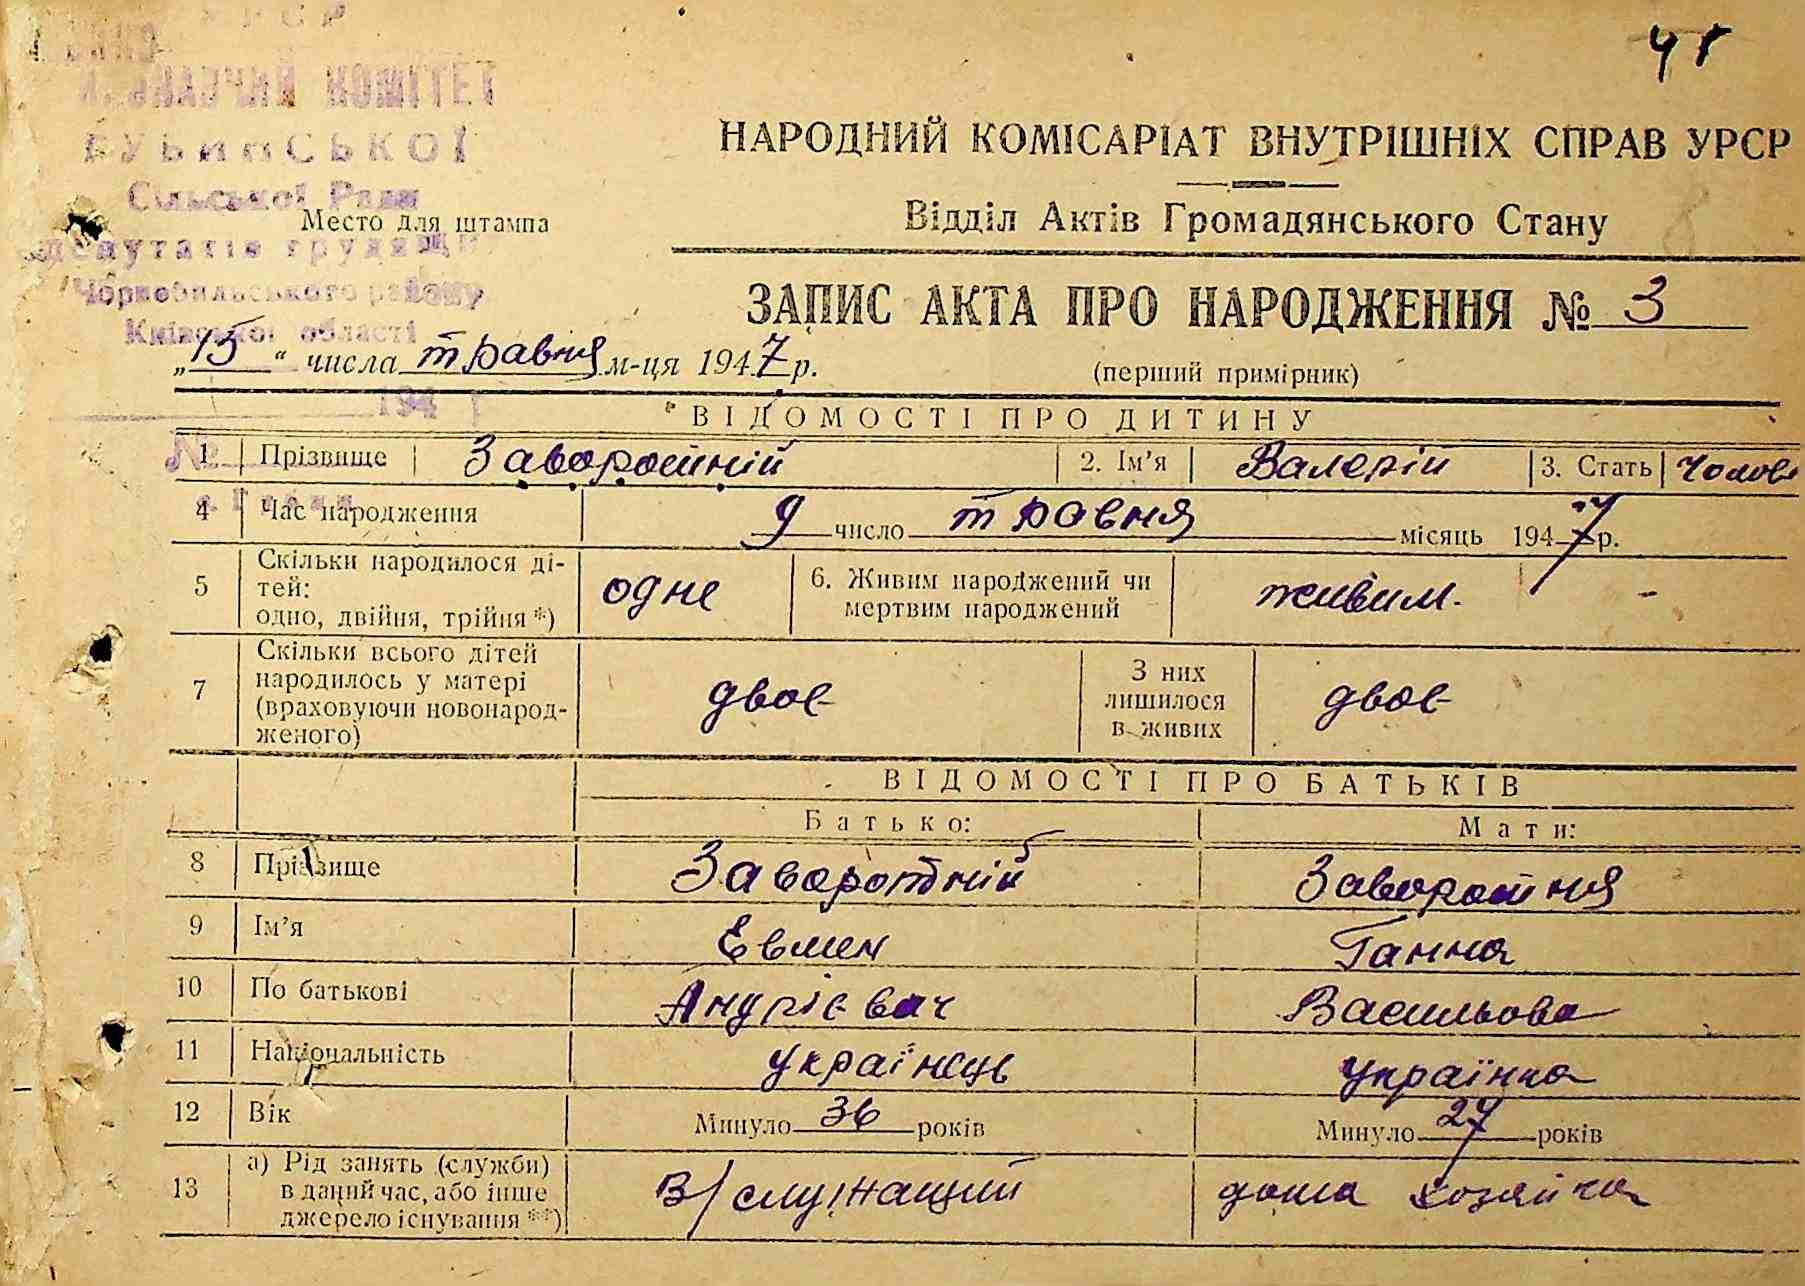 УРСР
ВИКОНАВЧИЙ КОМІТЕТ
Сільської Ради
депутатів трудящ
Чорнобильського району
Київської області
194 р
№
Место для штампа
НАРОДНИЙ КОМІСАРІАТ ВНУТРІШНІХ СПРАВ УРСР
Відділ Актів Громадянського Стану
ЗАПИС АКТА ПРО НАРОДЖЕННЯ № 3
„15“ числа травня м-ця 1947 р.
(перший примірник)
ВІДОМОСТІ ПРО ДИТИНУ
1 Прізвище Заворотній 2. Ім'я Валерій 3. Стать Чолов
4 Час народження 9 число травня місяць 1947 р.
5 Скільки народилося ді-
тей:
одно, двійня, трійня *) одне 6. Живим народжений чи
мертвим народжений живим.
7 Скільки всього дітей
народилось у матері
(враховуючи новонарод-
женого) двоє З них
лишилося
в живих двоє
ВІДОМОСТІ ПРО БАТЬКІВ
Батько: Мати:
8 Прізвище Заворотній Заворотня
9 Ім'я Евмен Ганна
10 По батькові Андрієвич Васильова
11 Національність українець українка
12 Вік Минуло 36 років Минуло 27 років
13 а) Рід занять (служби)
в даний час, або інше
джерело існування **) В/служащий дома хозяйка